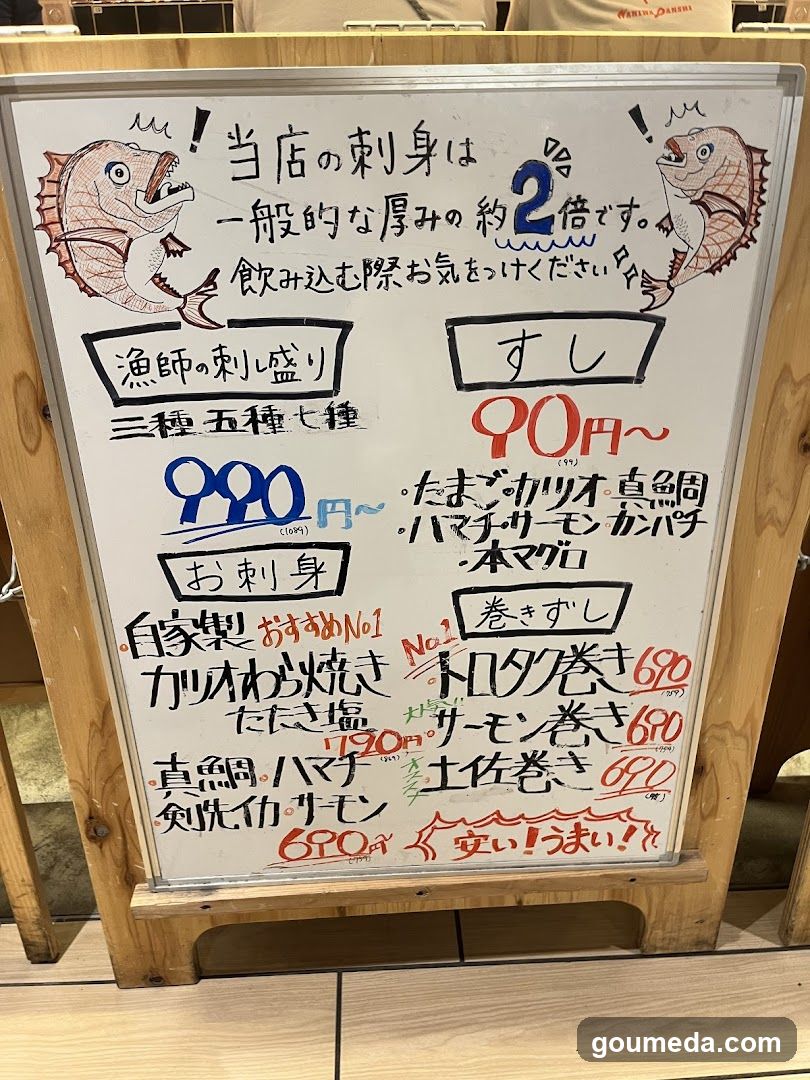 NANIWA DANSHI
当店の刺身は
一般的な厚みの約2倍です。
飲み込む際お気をつけください
漁師の刺し盛り
三種 五種 七種
990円〜
(1089)
お刺身
・自家製 おすすめNo1
カツオわら焼き
たたき塩
790円
(869)
・真鯛・ハマチ
・剣先イカ・サーモン
690円〜
(759)
すし
90円〜
(99)
・たまご・カツオ・真鯛
・ハマチ・サーモン・カンパチ
・本マグロ
巻きずし
No.1
・トロタク巻き 690
(759)
大人気!!
・サーモン巻き 690
(759)
オススメ
・土佐巻き 690
安い!うまい!
goumeda.com